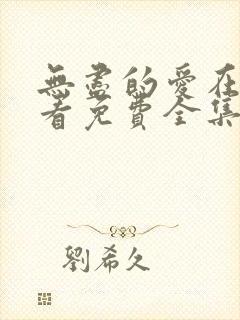 無盡的愛在
看免費全集
劉希久